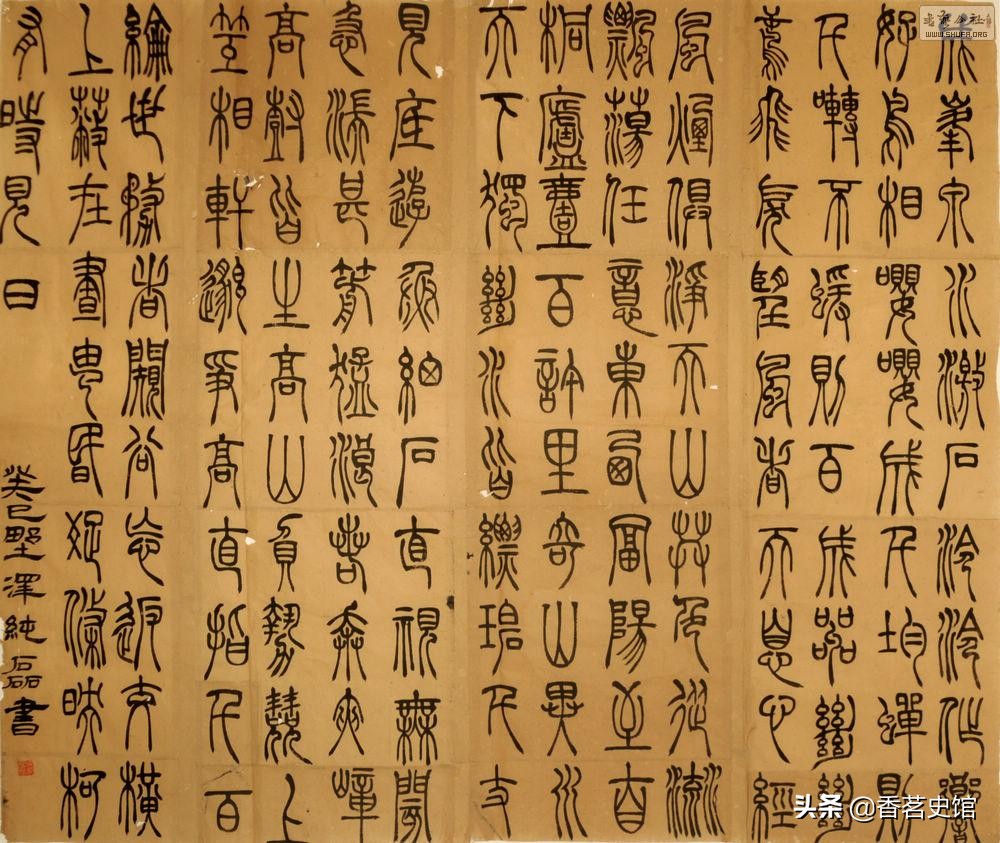 峯泉水激石泠泠作響
好鳥相嚶嚶成千均蟬則
千囀不蝯則百
鳶飛戾望峯者天息心經
風煙俱淨天山共色從流
飄蕩任意東西富陽至自
桐廬壹百許里奇山異水
天下獨絕水皆縹碧千丈
見底遊魚細石直視無閡
急湍甚箭猛浪若奔夾嶂
高樹皆生高山負勢競上
互相軒邈爭高直指千百
綸世務者闚谷忘返交橫
上蔽在晝昏疏條映柯
有時見日
癸巳野澤純磊書
WWW.SHUFA.ORG
头条 @香茗史馆